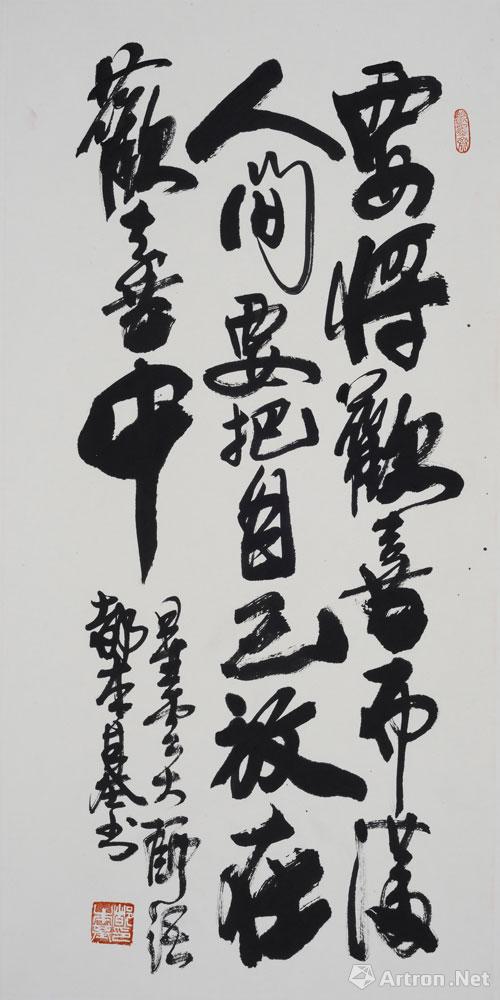 要將歡喜布滿
人間要把自己放在
歡喜中
星雲大師語
都本基書
Artron.Net